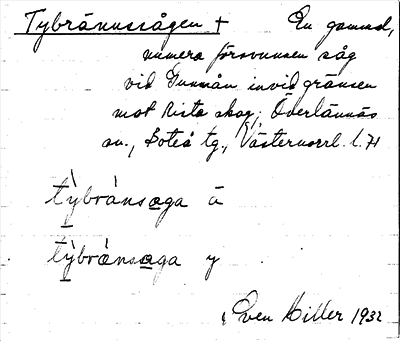 Tybrännssågen + En gammal,
numera försvunnen såg
vid Gunnån invid gränsen
mot Rista skog; Överlännäs
sn., Boteå tg., Västernorrl. l. 71
tỳbránsaga ā
tỳbránsaga y
Even Hiller 1932